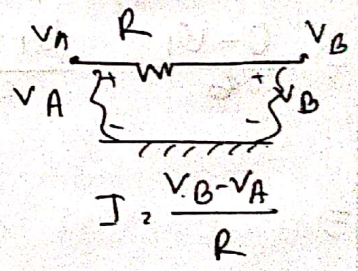 R
VA VB
VA + + VB
- -
I = VB-VA / R